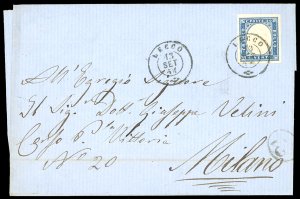 LECCO
13
SET
61
LECCO
All'Egregio Signore
Il Sig. Dott. Giuseppe Velini
Corso P.ta Vittoria
No. 20
Milano